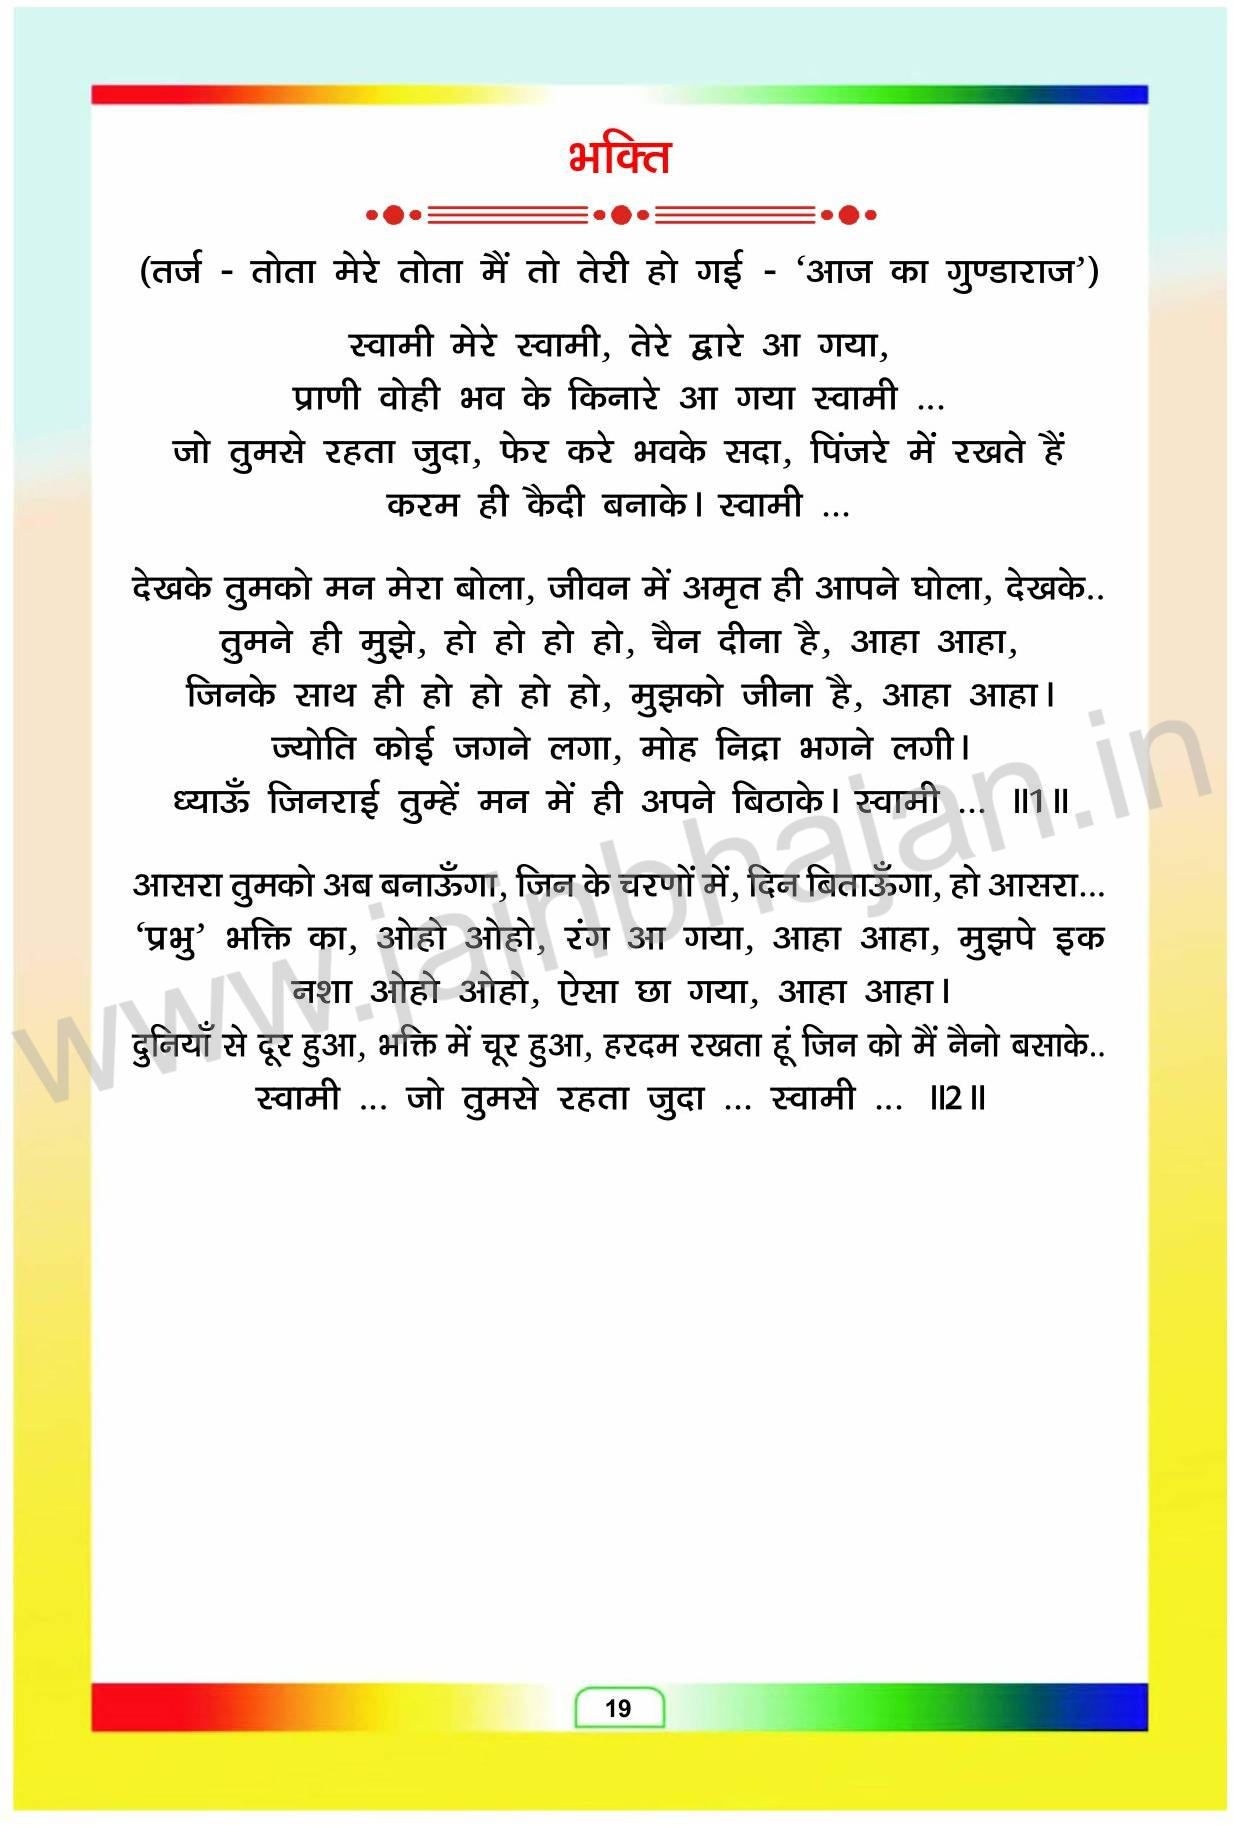 भक्ति
(तर्ज - तोता मेरे तोता मैं तो तेरी हो गई - ‘आज का गुण्डाराज’)
स्वामी मेरे स्वामी, तेरे द्वारे आ गया,
प्राणी वोही भव के किनारे आ गया स्वामी ...
जो तुमसे रहता जुदा, फेर करे भवके सदा, पिंजरे में रखते हैं
करम ही कैदी बनाके। स्वामी ...
देखके तुमको मन मेरा बोला, जीवन में अमृत ही आपने घोला, देखके..
तुमने ही मुझे, हो हो हो हो, चैन दीना है, आहा आहा,
जिनके साथ ही हो हो हो हो, मुझको जीना है, आहा आहा।
ज्योति कोई जगने लगा, मोह निद्रा भगने लगी।
ध्याऊँ जिनराई तुम्हें मन में ही अपने बिठाके। स्वामी ... ॥1॥
आसरा तुमको अब बनाऊँगा, जिन के चरणों में, दिन बिताऊँगा, हो आसरा...
‘प्रभु’ भक्ति का, ओहो ओहो, रंग आ गया, आहा आहा, मुझपे इक
नशा ओहो ओहो, ऐसा छा गया, आहा आहा।
दुनियाँ से दूर हुआ, भक्ति में चूर हुआ, हरदम रखता हूं जिन को मैं नैनो बसाके..
स्वामी ... जो तुमसे रहता जुदा ... स्वामी ... ॥2॥
www.jainbhajan.in
19